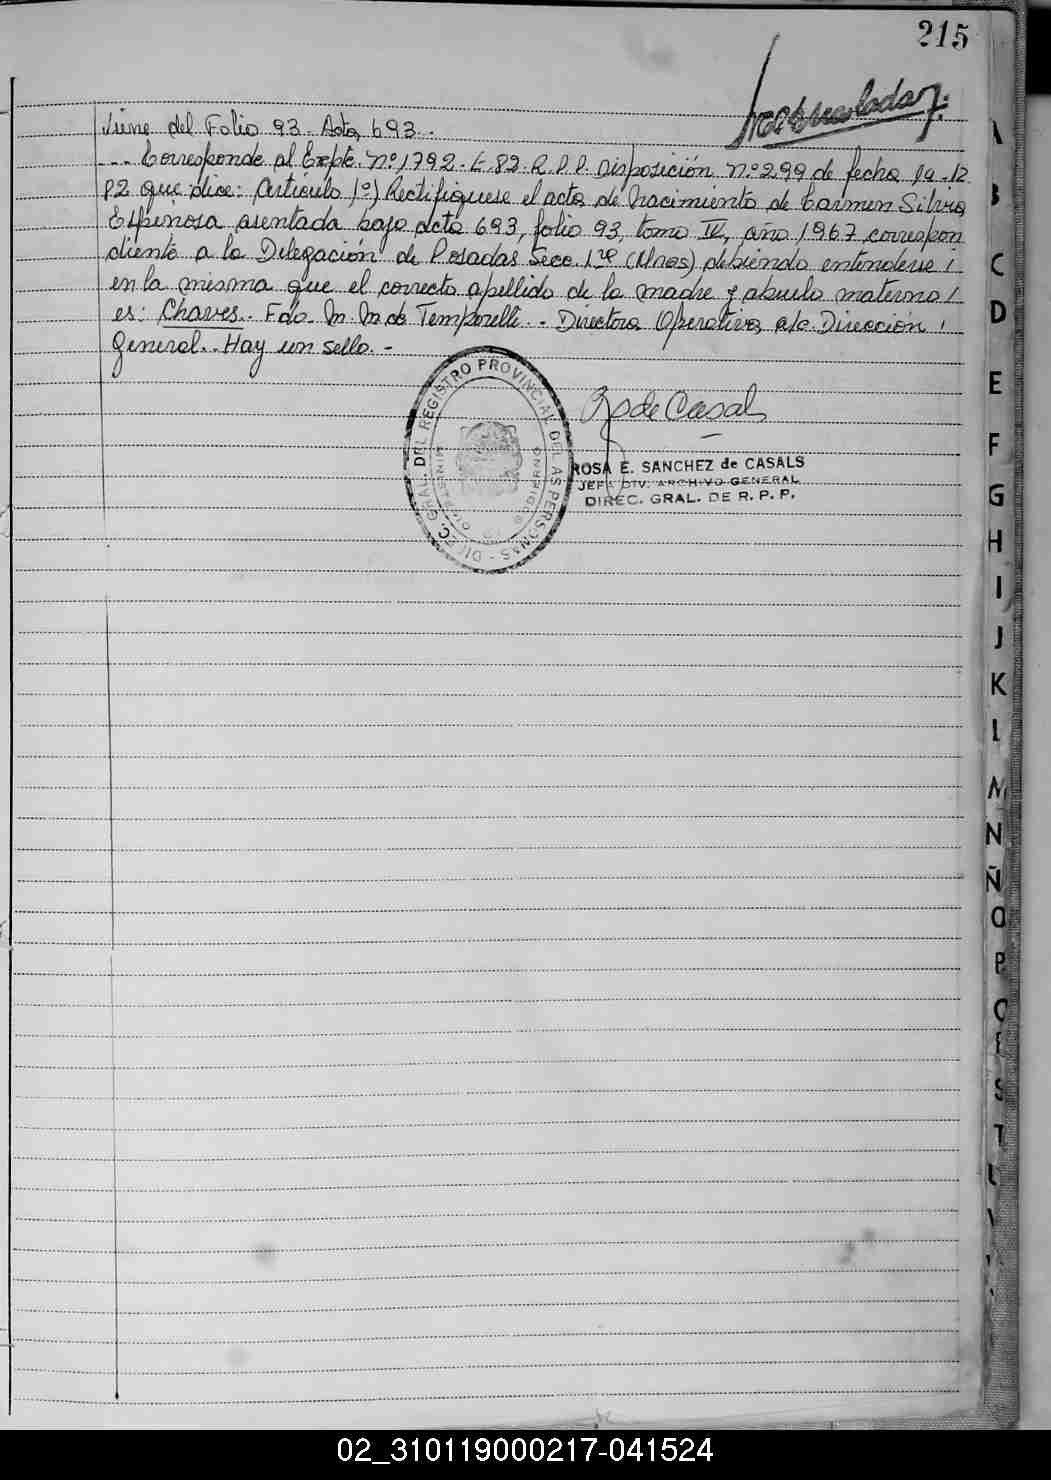 215
Microfilmada
Viene del Folio 93. Acta 693.
--- Corresponde al Expte. Nº 1792. E. 82. R.P.P. Disposición. Nº 299 de fecha 19-12
82 que dice: Artículo 1º) Rectifíquese el acta de nacimiento de Carmen Silvia
Espinosa asentada bajo acta 693, folio 93, tomo IV, año 1967 correspon
diente a la Delegación de Posadas Secc. 1ra (Mnes) debiendo entenderse /
en la misma que el correcto apellido de la madre y abuelo materno /
es: Chaves.. Fdo. M. M. de Temporelli.. Directora Operativa a/c. Dirección /
General.. Hay un sello. -
DIREC. GRAL. DEL REGISTRO PROVINCIAL DE LAS PERSONAS
MINISTERIO DE GOBIERNO
R de Casals
ROSA E. SANCHEZ de CASALS
JEFA DIV. ARCHIVO GENERAL
DIREC. GRAL. DE R. P. P.
A
B
C
D
E
F
G
H
I
J
K
L
M
N
Ñ
O
P
Q
R
S
T
02_310119000217-041524